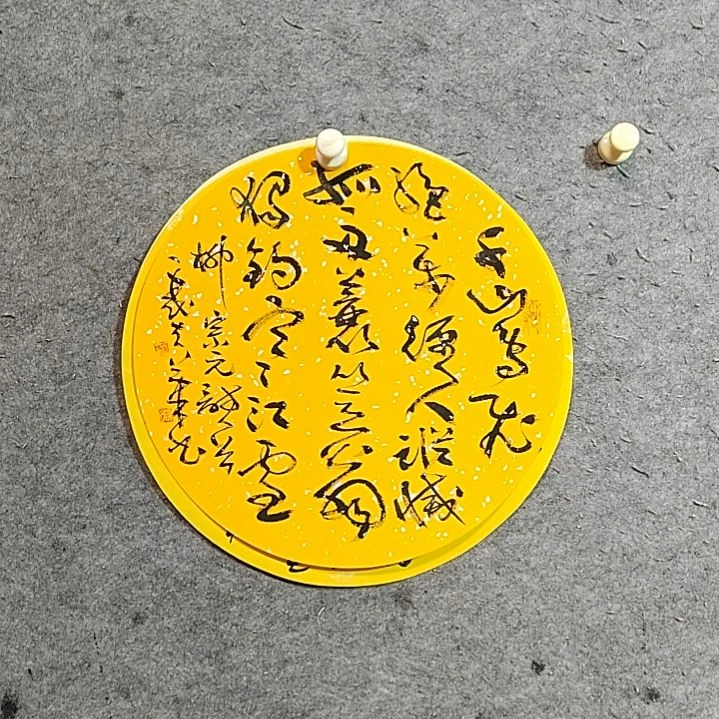 千山鳥飛
絕萬徑人蹤滅
孤舟蓑笠翁
獨釣寒江雪
柳宗元